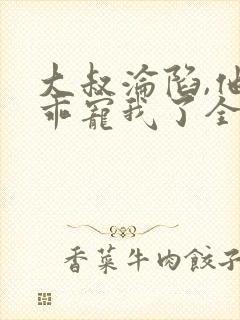 大叔淪陷,他
乖寵我了全
香菜牛肉餃子